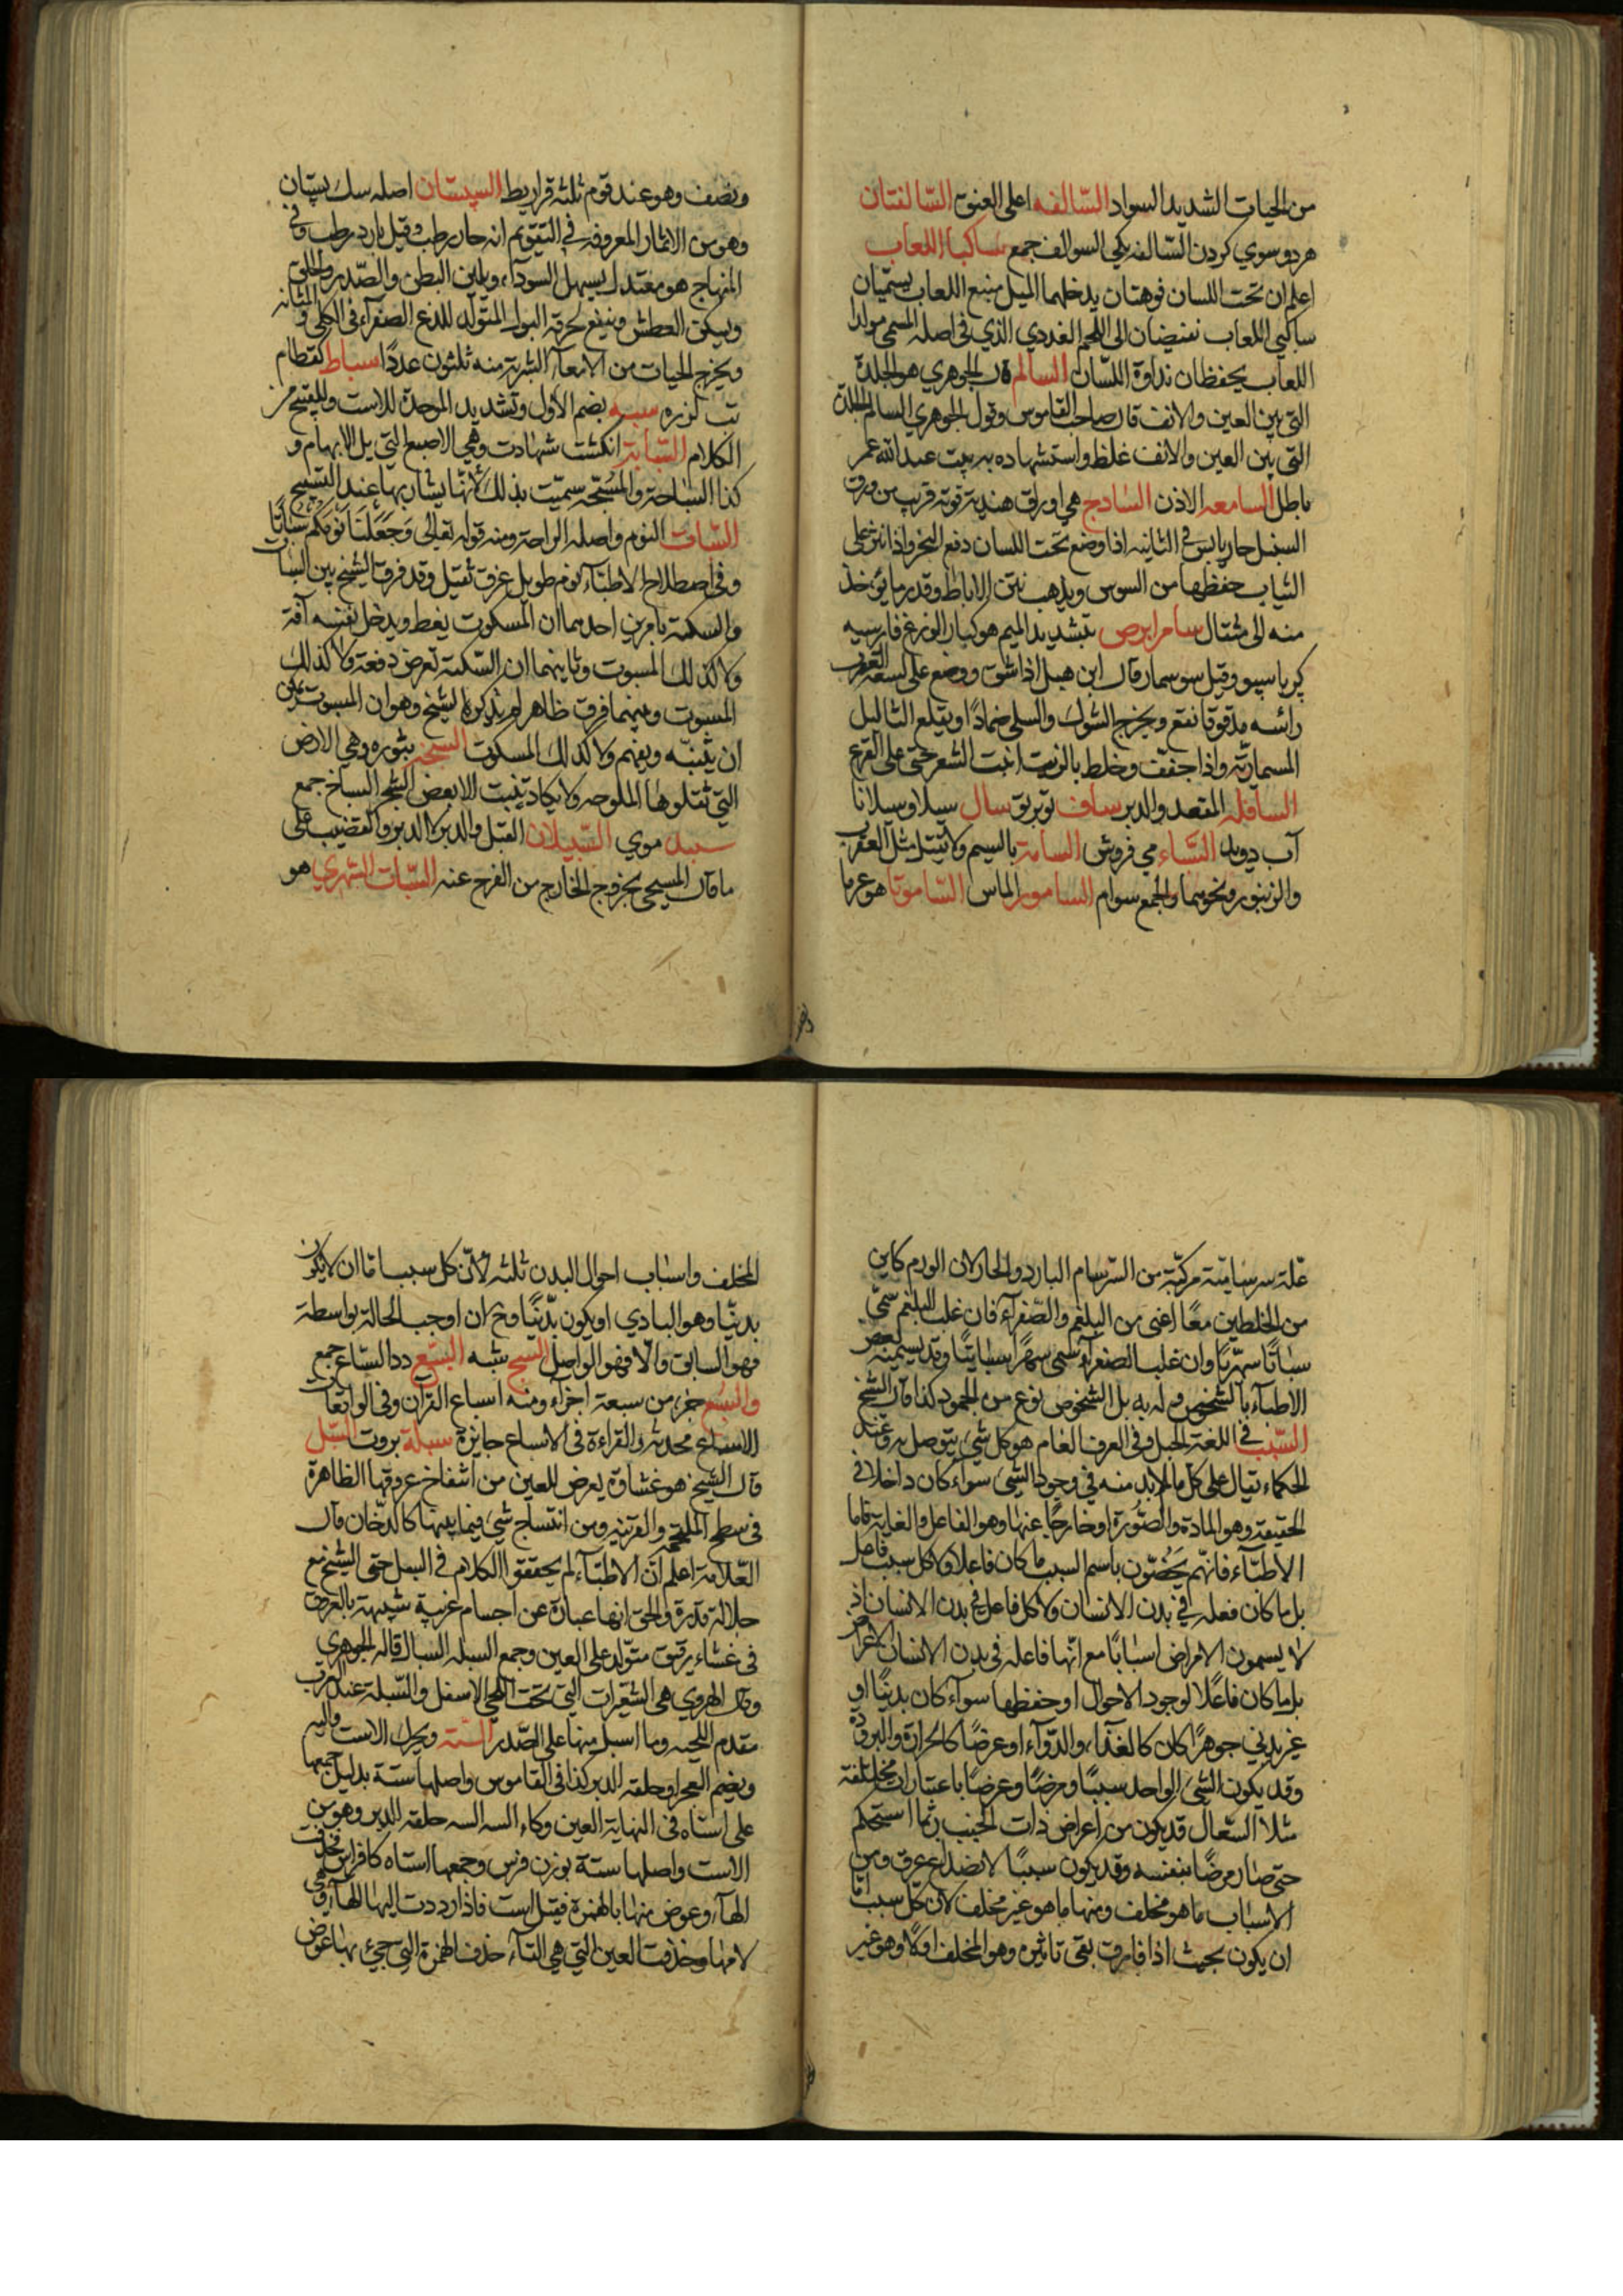 من الحيات الشديد السواد السّالفه اعلى العنق السّالفتان
هردو سوي كردن السّالفه يكى السوالف جمع ساكبا اللعاب
اعلم ان تحت اللسان فوهتان يدخلهما الميل منبع اللعاب يسمّيان
ساكبي اللعاب تفيضان الى اللحم الغددي الذي فى اصله المسمى مولد
اللعاب يحفظان نداوة اللسّان السالم قال الجوهري هو الجلدة
التى بين العين والانف قال صاحب القاموس وقول الجوهري السالم الجلدة
التى بين العين والانف غلط واستشهاده ببيت عبد الله بن عمر
باطل السامعه الاذن السّادج هي اوراق هندية قوته قريب من ورق
السنبل حار يابس فى الثانيه اذا وضع تحت اللسان دفع البخر واذا نثر على
الثياب حفظها من السوس ويذهب نتن الاباط وقدر ما يؤخذ
منه الى مثقال سام ابرص بتشديد الميم هو كبار الوزغ فارسيه
كرباسو وقيل سوسمار قال ابن هبل اذا شق ووضع على لسعة العقرب
رائسه مدقوقا نفع ويخرج الشوك والسلى ضمادًا ويقلع الثاليل
المسمارية واذا جفف وخلط بالزيت انبت الشعر حتى على القرع
السافله المقعد والدبر ساق سال سيلا وسيلانا
آب دويد السّاء مي فروش السامة بالسم ولا تقتل مثل العقرب
والزنبور ونحوهما والجمع سوام السامور الماس السّاموتا هو غرما
ونصف وهو عند قوم ثلثه قراريط السپستان اصله سك پستان
وهو من الاثمار المعروفه فى التقويم انه حار رطب وقيل بارد رطب وفى
المنهاج هو معتدل يسهل السوداء ويلين البطن والصّدر والحلق
ويسكن العطش وينفع لحرقة البول المتولد للذع الصفرآء فى الكلى والمثانه
ويخرج الحيات من الامعآء الشربة منه ثلثون عددًا سباط كقطام
تب لرزه سبه بضم الاول وتشديد الموحدة للاست وللقبيح من
الكلام السّبّابة انكشت شهادت وهي الاصبع التى يلى الابهام و
كذا السّباحة والمسُبّحة سمّيت بذلك لانّها يشار بها عند التسبيح
السّبات النوم واصله الراحة ومنه قوله تعالى وَجَعَلْنَا نَوْمَكُمْ سُبَاتًا
وفى اصطلاح الاطبآء نوم طويل غرق ثقيل وقد فرق الشيخ بين السبات
والسكتة بامرين احدهما ان المسكوت يغط ويدخل نفسه آفة
ولا كذلك المسبوت وثانيهما ان السّكتة تعرض دفعة ولا كذلك
المسبوت وبينهما فرق ظاهر لم يذكره الشيخ وهو ان المسبوت يمكن
ان يُنبّه ويفهم ولا كذلك المسكوت السبخه شوره وهي الارض
التى تعلوها الملوحه ولا يكاد ينبت الا بعض الشجر السباخ جمع
سبد موي السّبيلان القبل والدبر الدبر والقضيب على
ما قال المسيحى بخروج الخارج من الفرج عنه السّبات السّهري هو
علّة سرسامية مركبّة من السّرسام البارد والحار لان الورم كاين
من الخلطين معًا اعنى من البلغم والصّفرآء فان غلب البلغم سمّي
سباتًا سهريًا وان غلب الصفرآء سمى سهرًا سباتيًا وقد يسميه بعض
الاطبآء بالشخوص وليس به بل الشخوص نوع من الجمود كذا قال الشيخ
السّبب فى اللغة الحبل وفى العرف العام هو كل شئ يتوصل به وعند
الحكماء يقال على كل ما لابد منه فى وجود الشئ سواء كان داخلا فى
الحقيقة وهو المادة والصّورة او خارجًا عنها وهو الفاعل والغاية فاما
الاطبّآء فانّهم يخُصّون باسم السبب ما كان فاعلا ولا كل سبب فاعل
بل ما كان فعله فى بدن الانسان ولا كل فاعل فى بدن الانسان اذ
لا يسمون الامراض اسبابًا مع انّها فاعله فى بدن الانسان الاعراض
بل ما كان فاعلًا لوجود الاحوال او حفظها سوآء كان بدنيًا او
غير بدني جوهرًا كان كالغذآء والدّوآء او عرضًا كالحرارة والبرودة
وقد يكون الشئ الواحد سببًا ومرضًا وعرضًا باعتبارات مختلفة
مثلا السّعال قد يكون من اعراض ذات الجنب ربّما استحكم
حتى صار مرضًا بنفسه وقد يكون سببًا لانصداع عرق ومن
الاسباب ما هو مخلف ومنها ما هو غير مخلف لان كل سبب امّا
ان يكون بحيث اذا فارق بقى تاثيره وهو المخلف اولا وهو غير
المخلف واسباب احوال البدن ثلثه لانّ كل سبب امّا ان لا يكون
بدنيّا وهو البادي او يكون بدنيًّا وح ان اوجب الحالة بواسطة
فهو السابق والّا فهو الواصل السبج شبه السبُع دد السّباع جمع
والسُبع جزء من سبعة اجزآء ومنه اسباع القرآن وفى الواقعات
الاسباع محدثة والقراءة فى الاسباع جايزة سبلة بروت السّبل
قال الشيخ هو غشاوة يعرض للعين من انتفاخ عروقها الظاهرة
فى سطح الملتحمة والقرنيه ومن انتساج شئ فيما بينها كالدّخان قال
العّلامة اعلم انّ الاطبّآء لم يحققوا الكلام فى السبل حتى الشيخ مع
جلالة قدره والحق انها عبارة عن اجسام غريبة شبيهة بالعروق
فى غشاء رقيق متولد على العين وجمع السبله السبال قاله الجوهري
وقال الهروي هى الشعرات التى تحت اللحى الاسفل والسّبلة عند العرب
مقدم اللحيه وما اسبل منها على الصّدر السّته ويحرك الاست
ويضم العجز او حلقه الدبر كذا فى القاموس واصلها ستة بدليل جمعها
على استاه فى النهاية العين وكاء السه السه حلقه الدبر وهو من
الاست واصلها ستة بوزن فرس وجمعها استاه كافراس فحذفت
الهآء وعوض منها بالهمزة فقيل است فاذا رددت اليها الهآء وهى
لامها وحذفت العين التى هي التآء حذف الهمزة التى جئ بها عوض